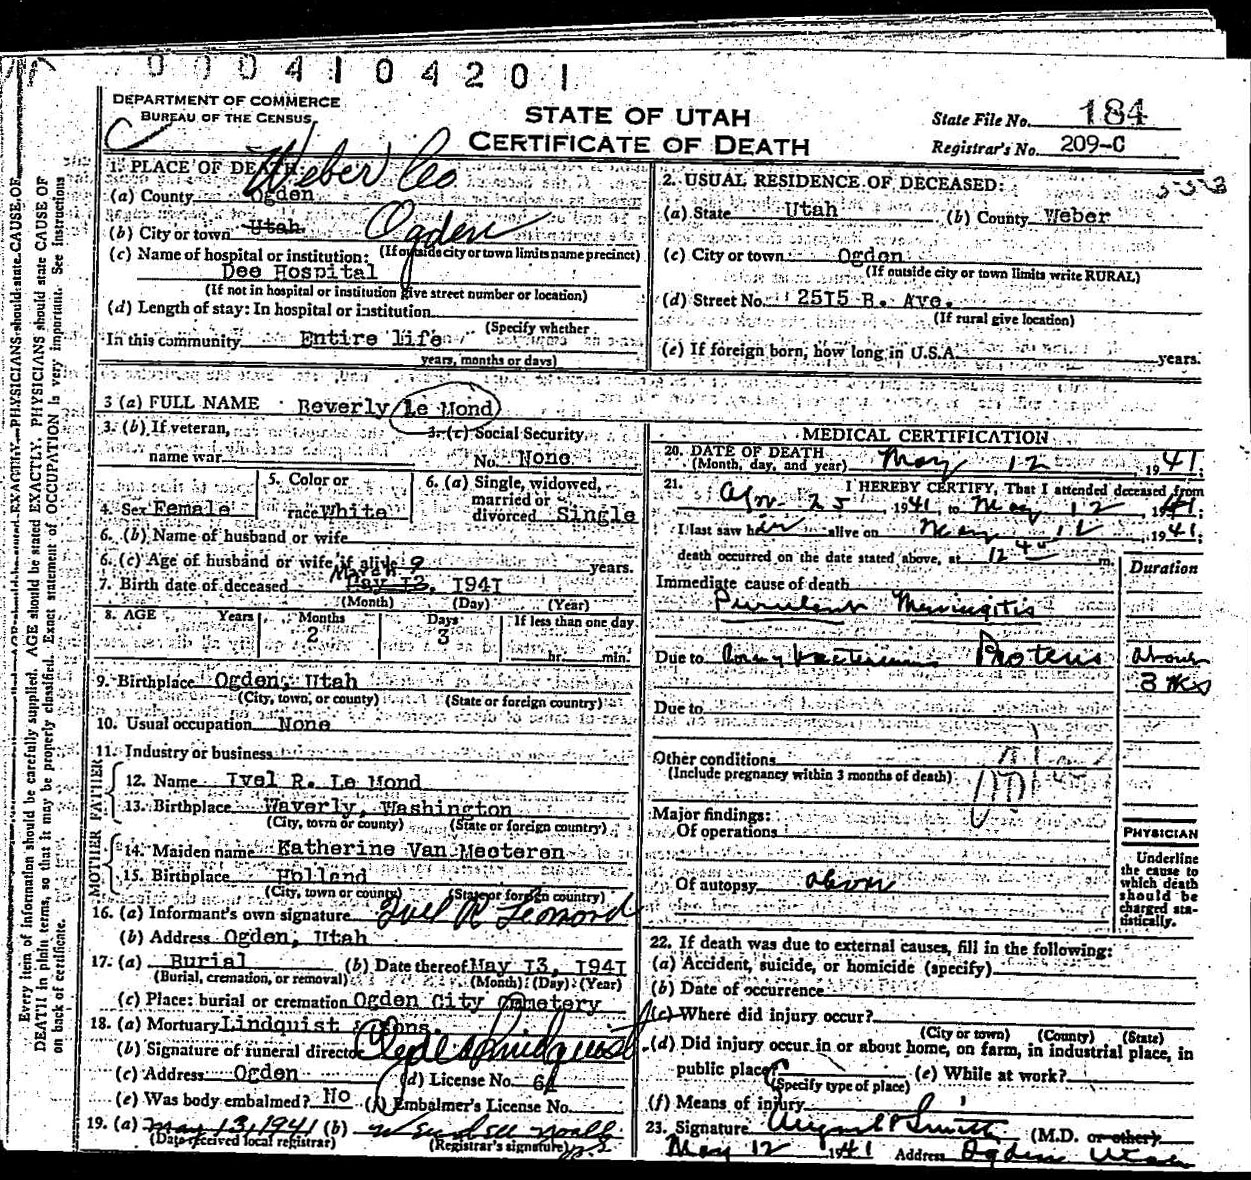 0004104201
DEPARTMENT OF COMMERCE
BUREAU OF THE CENSUS
STATE OF UTAH
CERTIFICATE OF DEATH
State File No. 184
Registrar's No. 209-C
1. PLACE OF DEATH: Weber Co
(a) County Ogden
(b) City or town Utah Ogden
(If outside city or town limits name precinct)
(c) Name of hospital or institution:
Dee Hospital
(If not in hospital or institution give street number or location)
(d) Length of stay: In hospital or institution
(Specify whether
In this community Entire life
years, months or days)
2. USUAL RESIDENCE OF DECEASED:
(a) State Utah (b) County Weber
(c) City or town Ogden
(If outside city or town limits write RURAL)
(d) Street No. 2515 B. Ave.
(If rural give location)
(e) If foreign born, how long in U.S.A. years.
3 (a) FULL NAME Beverly Le Mond
3. (b) If veteran,
name war
3. (c) Social Security
No. None
4. Sex Female
5. Color or
race White
6. (a) Single, widowed,
married or
divorced Single
6. (b) Name of husband or wife
6. (c) Age of husband or wife if alive years.
March 9
7. Birth date of deceased May 13, 1941
(Month) (Day) (Year)
8. AGE Years Months Days If less than one day
2 3 hr. min.
9. Birthplace Ogden, Utah
(City, town, or county) (State or foreign country)
10. Usual occupation None
11. Industry or business
FATHER
12. Name Ivel R. Le Mond
13. Birthplace Waverly, Washington
(City, town or county) (State or foreign country)
MOTHER
14. Maiden name Katherine Van Meeteren
15. Birthplace Holland
(City, town or county) (State or foreign country)
16. (a) Informant's own signature Ivel R Lemond
(b) Address Ogden, Utah
17. (a) Burial (b) Date thereof May 13, 1941
(Burial, cremation, or removal) (Month) (Day) (Year)
(c) Place: burial or cremation Ogden City Cemetery
18. (a) Mortuary Lindquist & Sons.
(b) Signature of funeral director Clyde Lindquist
(c) Address Ogden (d) License No.
(e) Was body embalmed? No (f) Embalmer's License No.
19. (a) May 13, 1941 (b)
(Date received local registrar) (Registrar's signature)
MEDICAL CERTIFICATION
20. DATE OF DEATH
(Month, day, and year) May 12 1941
21. I HEREBY CERTIFY, That I attended deceased from
Apr. 25 1941, to May 12, 1941;
I last saw her alive on May 12, 1941;
death occurred on the date stated above, at 12 40 m.
Duration
Immediate cause of death
Purulent Meningitis
Due to bacterium Proteus About
3 wks
Due to
Other conditions
(Include pregnancy within 3 months of death)
Major findings:
Of operations
Of autopsy above
PHYSICIAN
Underline
the cause to
which death
should be
charged sta-
tistically.
22. If death was due to external causes, fill in the following:
(a) Accident, suicide, or homicide (specify)
(b) Date of occurrence
(c) Where did injury occur?
(City or town) (County) (State)
(d) Did injury occur in or about home, on farm, in industrial place, in
public place?
(Specify type of place)
(e) While at work?
(f) Means of injury
23. Signature Smith (M.D. or other)
May 12 1941 Address Ogden Utah
Every item of information should be carefully supplied. AGE should be stated EXACTLY. PHYSICIANS should state CAUSE OF
DEATH in plain terms, so that it may be properly classified. Exact statement of OCCUPATION is very important. See Instructions
on back of certificate.